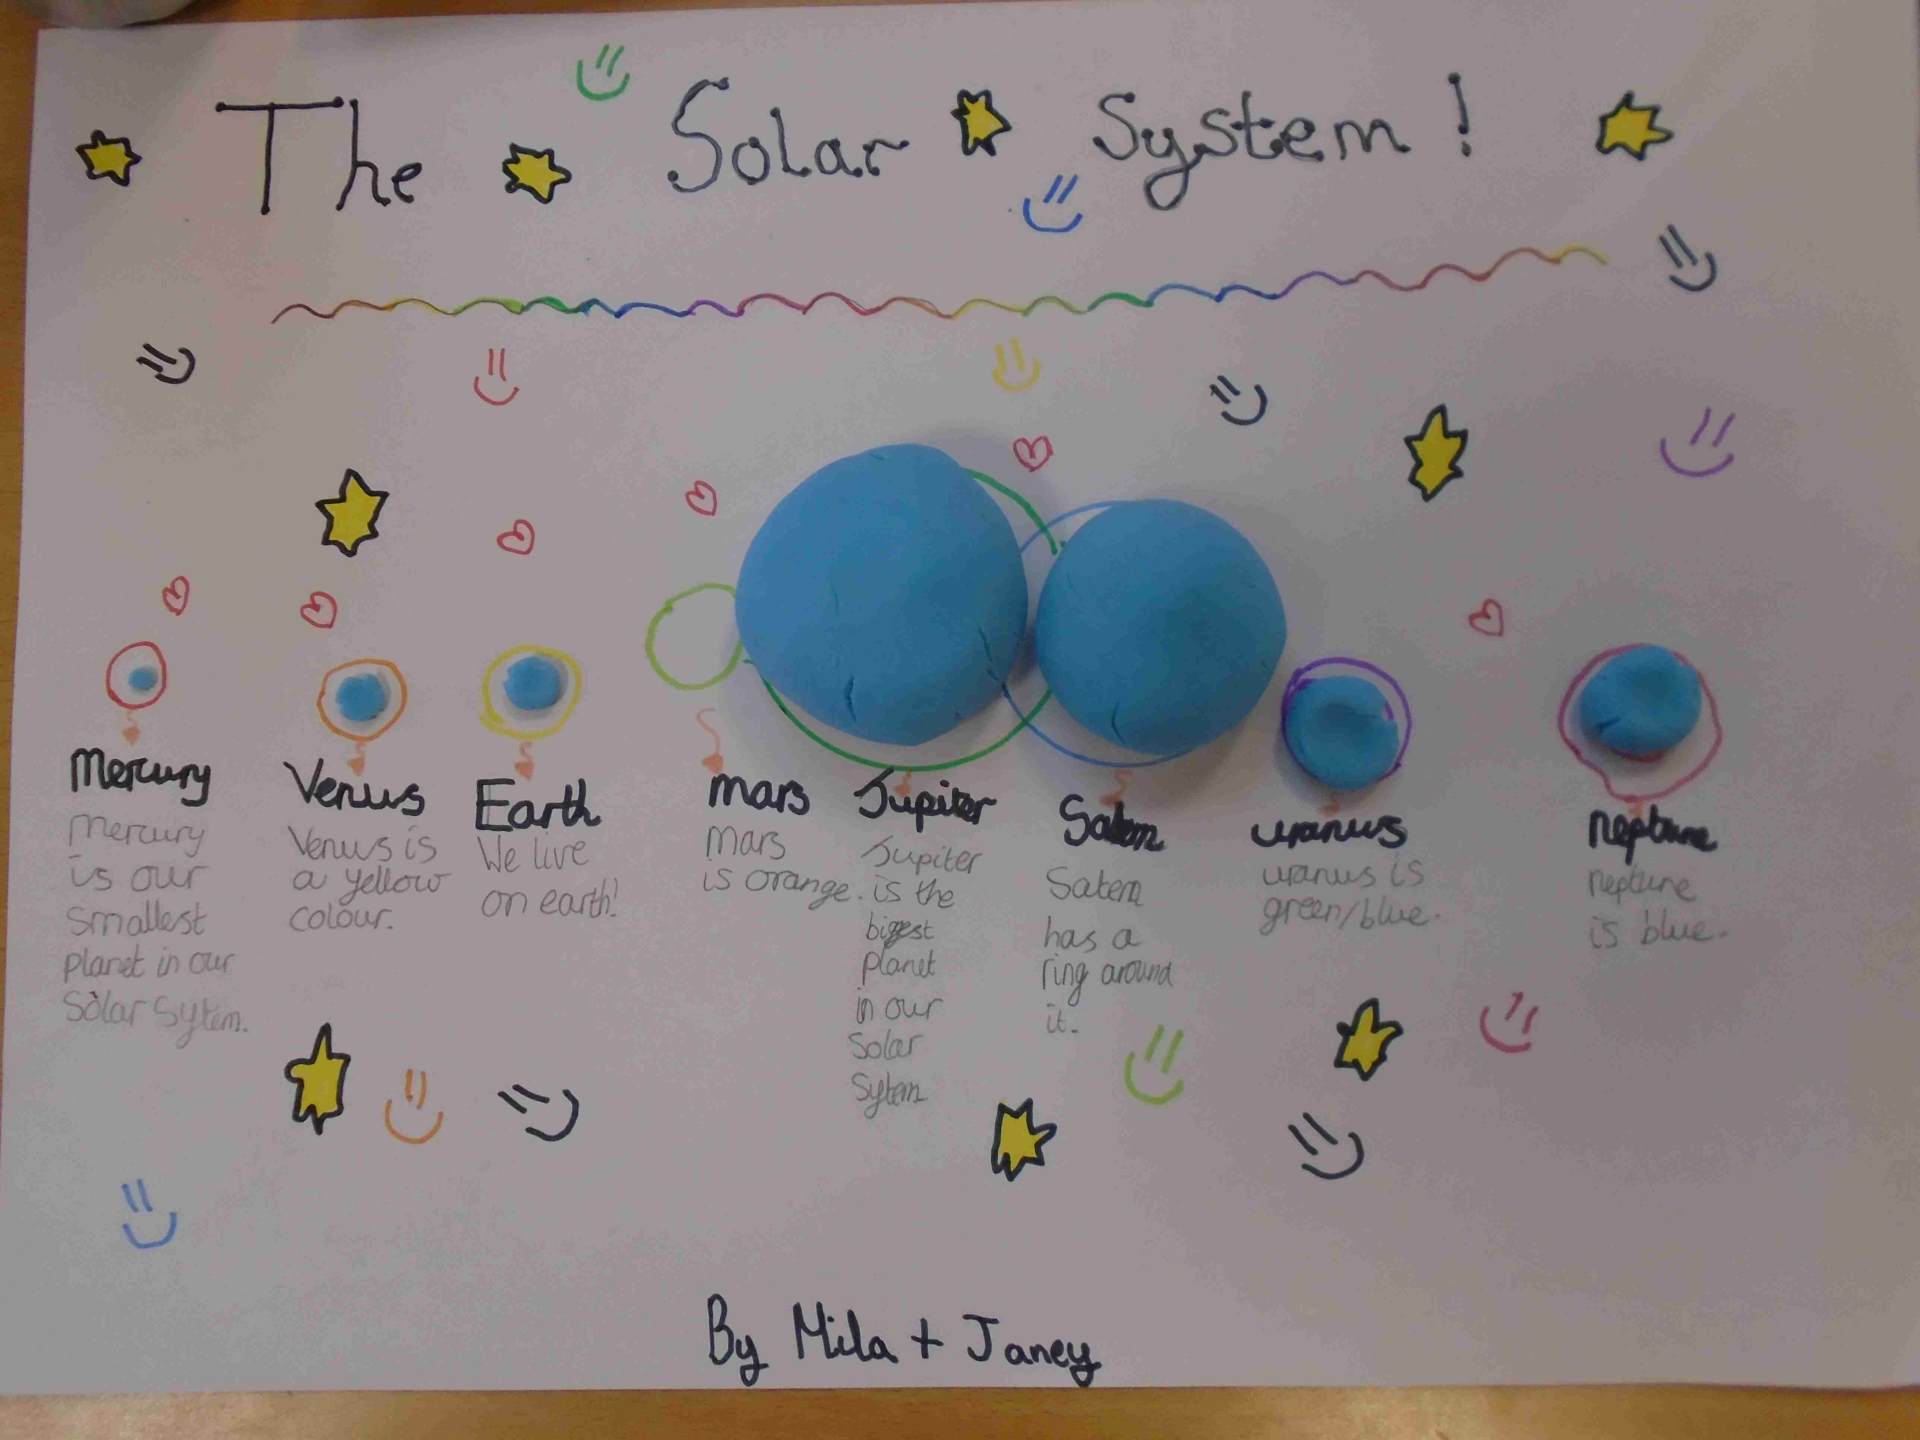 The Solar System!
Mercury
Mercury
is our
smallest
planet in our
Solar Sytem.
Venus
Venus is
a yellow
colour.
Earth
We live
on earth!
mars
mars
is orange.
Jupiter
Jupiter
is the
biggest
planet
in our
Solar
Sytem
Satern
Satern
has a
ring around
it.
uranus
uranus is
green/blue.
neptune
neptune
is blue.
By Mila + Janey